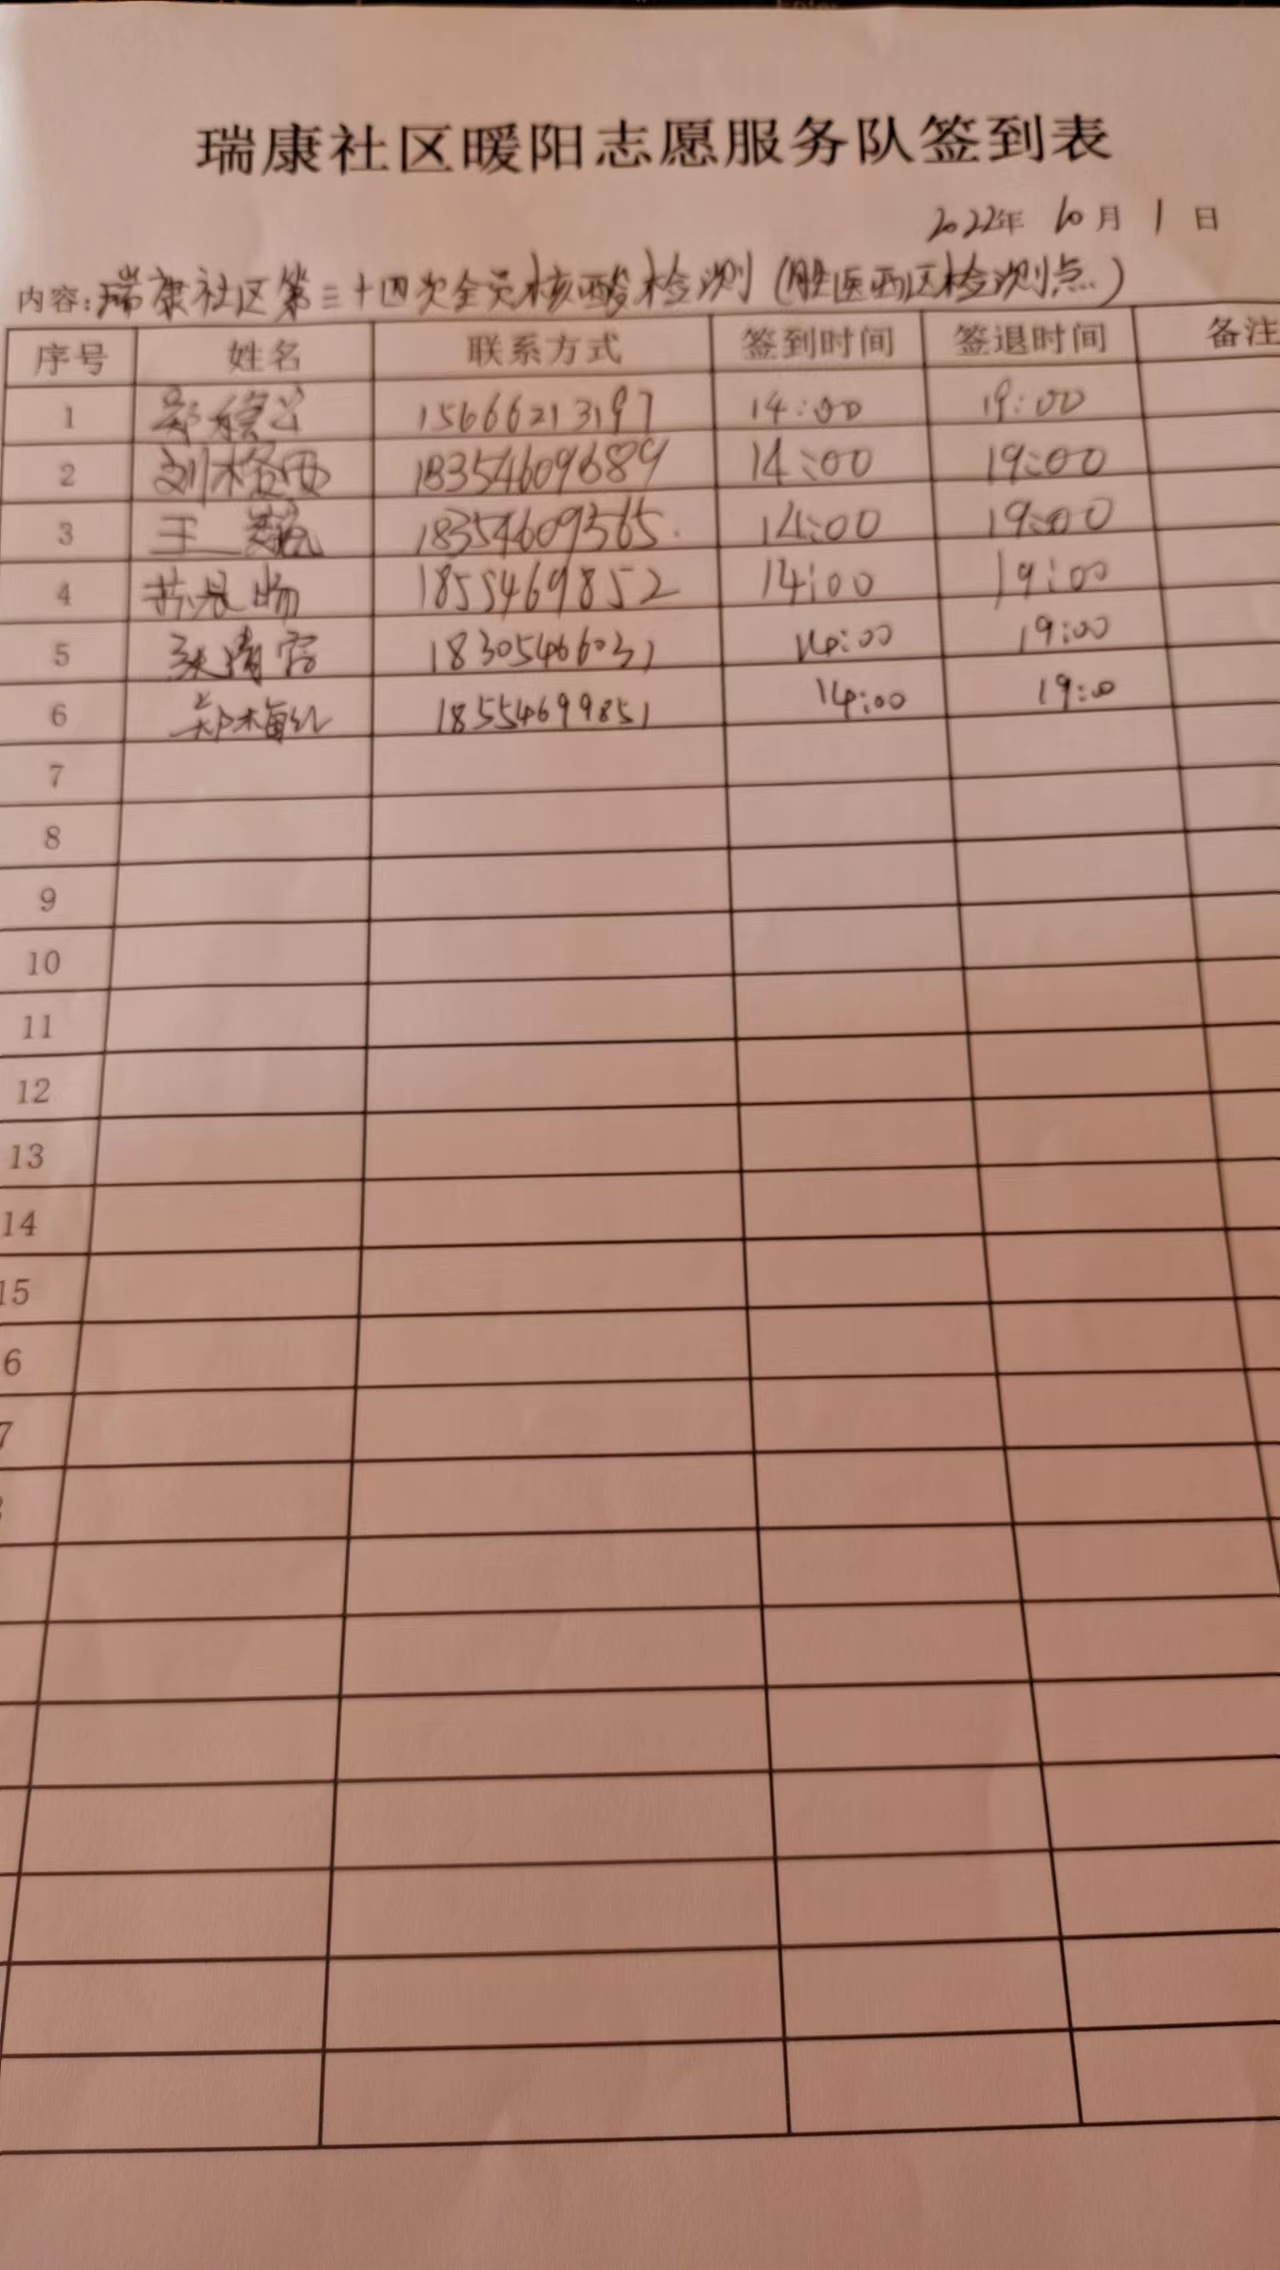 瑞康社区暖阳志愿服务队签到表
2022年 10月 1 日
内容:瑞康社区第三十四次全员核酸检测(胜医西区检测点)
序号 姓名 联系方式 签到时间 签退时间 备注
1 15666213197 14:00 19:00
2 刘 18354609689 14:00 19:00
3 王 18354609365 14:00 19:00
4 1855469852 14:00 19:00
5 18305466031 14:00 19:00
6 郑梅红 18554699851 14:00 19:00
7
8
9
10
11
12
13
14
15
6
7